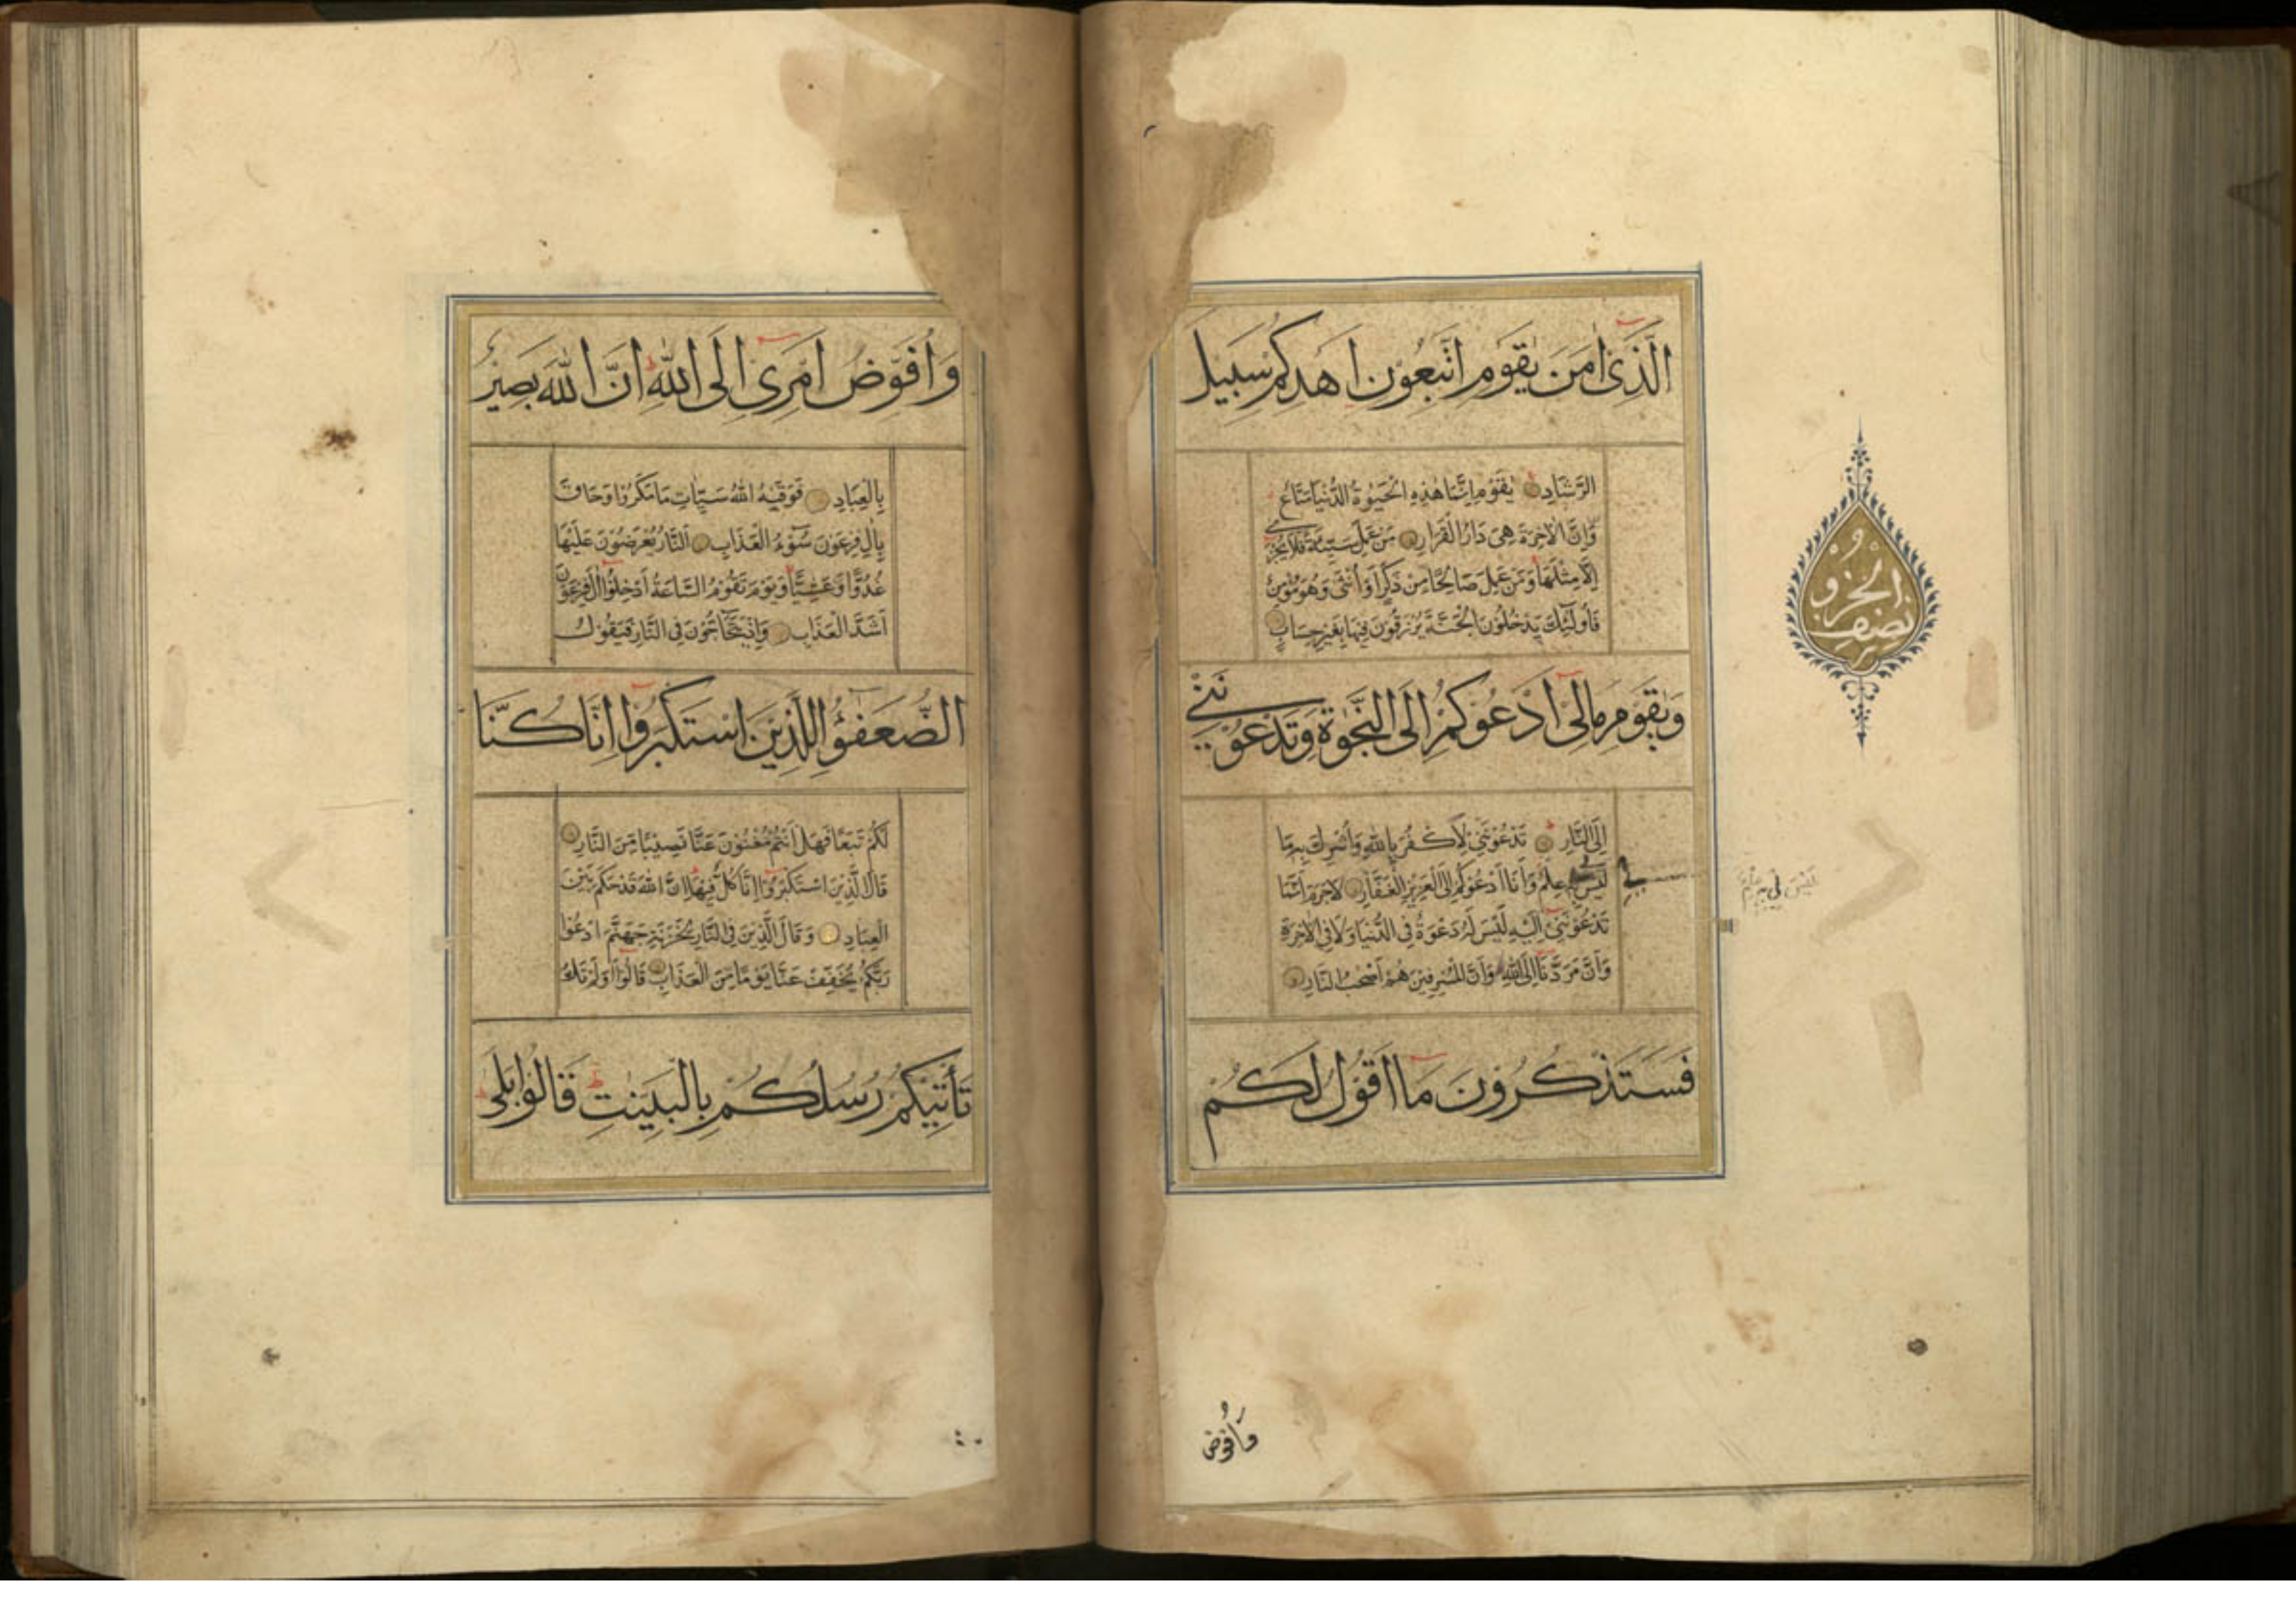 الَّذِي اٰمَنَ يٰقَوْمِ اتَّبِعُوْنِ اَهْدِكُمْ سَبِيلَ
الرَّشَادِ يٰقَوْمِ اِنَّمَا هٰذِهِ الْحَيٰوةُ الدُّنْيَا مَتَاعٌ
وَّاِنَّ الْاٰخِرَةَ هِيَ دَارُ الْقَرَارِ مَنْ عَمِلَ سَيِّئَةً فَلَا يُجْزٰى
اِلَّا مِثْلَهَا وَمَنْ عَمِلَ صَالِحًا مِنْ ذَكَرٍ اَوْ اُنْثٰى وَهُوَ مُؤْمِنٌ
فَاُولٰئِكَ يَدْخُلُوْنَ الْجَنَّةَ يُرْزَقُوْنَ فِيْهَا بِغَيْرِ حِسَابٍ
وَيٰقَوْمِ مَالِيْ اَدْعُوْكُمْ اِلَى النَّجٰوةِ وَتَدْعُوْنَنِيْ
اِلَى النَّارِ تَدْعُوْنَنِيْ لِاَكْفُرَ بِاللهِ وَاُشْرِكَ بِهِ مَا
لَيْسَ لِي بِهِ عِلْمٌ وَاَنَا اَدْعُوْكُمْ اِلَى الْعَزِيْزِ الْغَفَّارِ لَا جَرَمَ اَنَّمَا
تَدْعُوْنَنِيْ اِلَيْهِ لَيْسَ لَهُ دَعْوَةٌ فِي الدُّنْيَا وَلَا فِي الْاٰخِرَةِ
وَاَنَّ مَرَدَّنَا اِلَى اللهِ وَاَنَّ الْمُسْرِفِيْنَ هُمْ اَصْحٰبُ النَّارِ
فَسَتَذْكُرُوْنَ مَا اَقُوْلُ لَكُمْ
نصف
الحزب
لَيْسَ لِي بِهِ عِلْمٌ
وَاُفَوِّضُ
وَاُفَوِّضُ اَمْرِيْ اِلَى اللهِ اِنَّ اللهَ بَصِيْرٌ
بِالْعِبَادِ فَوَقٰيهُ اللهُ سَيِّاٰتِ مَا مَكَرُوْا وَحَاقَ
بِاٰلِ فِرْعَوْنَ سُوْءُ الْعَذَابِ اَلنَّارُ يُعْرَضُوْنَ عَلَيْهَا
غُدُوًّا وَّعَشِيًّا وَيَوْمَ تَقُوْمُ السَّاعَةُ اَدْخِلُوْا اٰلَ فِرْعَوْنَ
اَشَدَّ الْعَذَابِ وَاِذْ يَتَحَاجُّوْنَ فِي النَّارِ فَيَقُوْلُ
الضُّعَفٰؤُا لِلَّذِيْنَ اسْتَكْبَرُوْا اِنَّا كُنَّا
لَكُمْ تَبَعًا فَهَلْ اَنْتُمْ مُغْنُوْنَ عَنَّا نَصِيْبًا مِّنَ النَّارِ
قَالَ الَّذِيْنَ اسْتَكْبَرُوْا اِنَّا كُلٌّ فِيْهَا اِنَّ اللهَ قَدْ حَكَمَ بَيْنَ
الْعِبَادِ وَقَالَ الَّذِيْنَ فِي النَّارِ لِخَزَنَةِ جَهَنَّمَ ادْعُوْا
رَبَّكُمْ يُخَفِّفْ عَنَّا يَوْمًا مِّنَ الْعَذَابِ قَالُوْا اَوَلَمْ تَكُ
تَأْتِيْكُمْ رُسُلُكُمْ بِالْبَيِّنٰتِ قَالُوْا بَلٰى